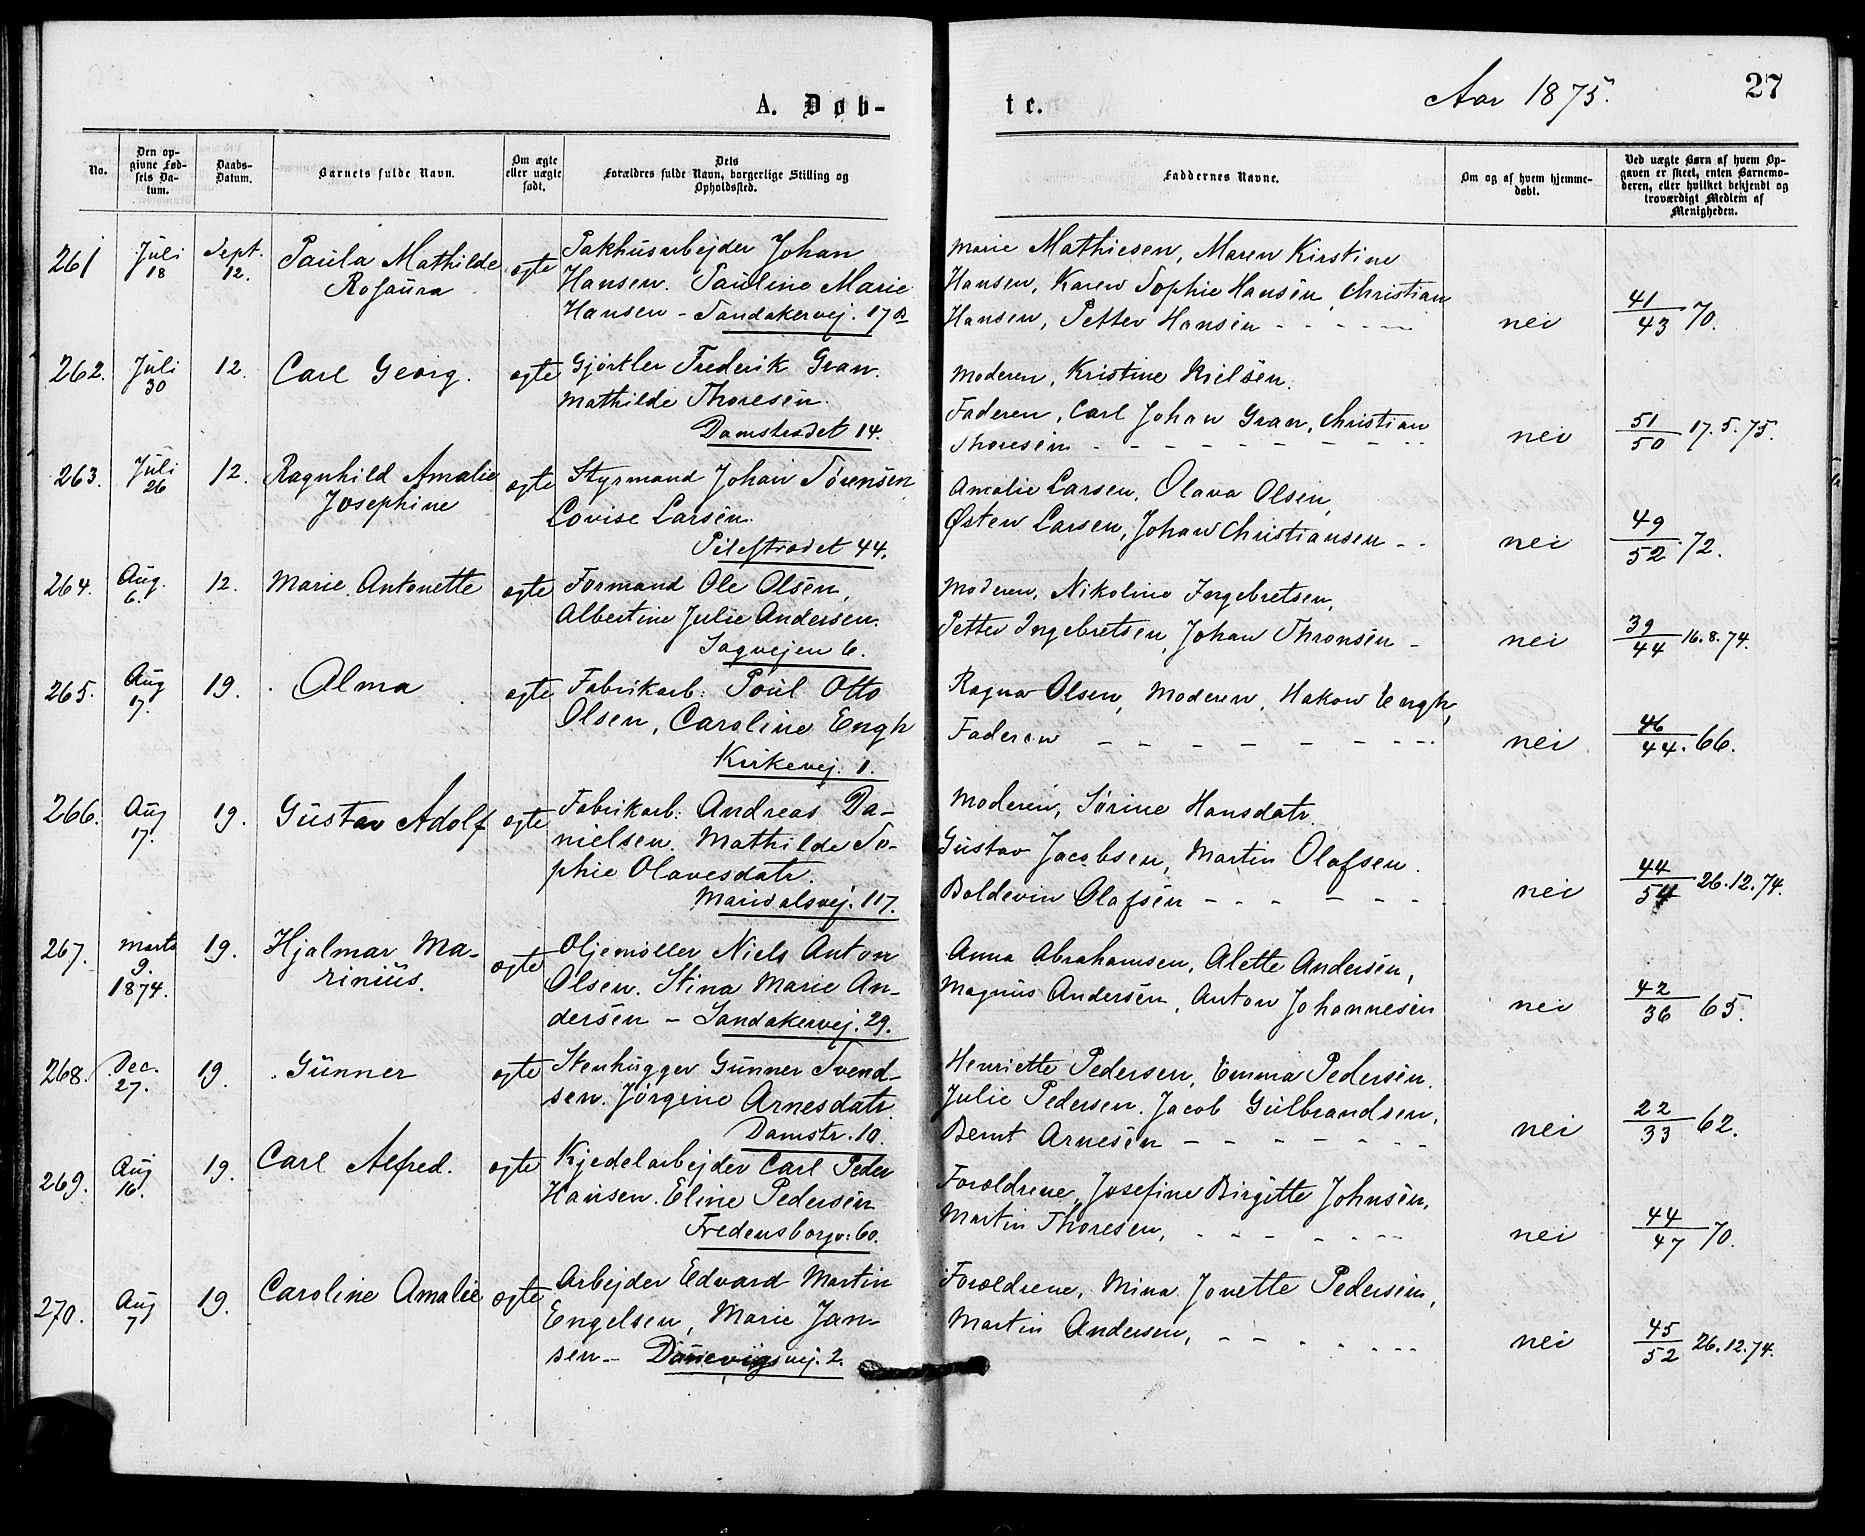 A. Døb-
te.
Aar 1875.
27
No.
Den op-
givne Fød-
sels Da-
tum.
Daabs-
Datum.
Barnets fulde Navn.
Om ægte
eller uægte
født.
Dets
Forældres fulde Navn, borgerlige Stilling og
Opholdssted.
Faddernes Navne.
Om og af hvem hjemme-
døbt.
Ved uægte Børn af hvem Op-
gaven er skeet, enten Barnemo-
deren, eller hvilket bekjendt og
troværdigt Medlem af
Menigheden.
261 Juli 18 Sept. 12. Paula Mathilde Rosaura ægte
Pakhusarbejder Johan
Hansen. Pauline Marie
Hansen - Sandakervej. 17 B
Marie Mathiesen, Maren Kirstine
Hansen, Karen Sophie Hansen, Christian
Hansen, Petter Hansen - - - - -
nei
41/43 70.
262. Juli 30 12. Carl Georg. ægte
Gjørtler Frederik Gran.
Mathilde Thoresen.
Damstrædet 14.
Moderen, Kristine Nielsen.
Faderen, Carl Johan Gran, Christian
Thoresen - - - - - - - - -
nei
51/50 17.5.75.
263. Juli 26 12. Ragnhild Amalie Josephine ægte
Styrmand Johan Sørensen
Lovise Larsen.
Pilestrædet 44.
Amalie Larsen, Olava Olsen,
Østen Larsen, Johan Christiansen - -
nei
49/52 72.
264. Aug. 6. 12. Marie Antonette ægte
Formand Ole Olsen,
Albertine Julie Andersen.
Sagvejen 6.
Moderen, Nikoline Ingebretsen,
Petter Ingebretsen, Johan Thronsen -
nei
39/44 16.8.74.
265. Aug 17. 19. Alma ægte
Fabrikarb: Poul Otto
Olsen, Caroline Engh
Kirkevej. 1.
Ragna Olsen, Moderen, Hakon Engh,
Faderen - - - - - - - -
nei
46/44. 66.
266. Aug 17. 19. Gustav Adolf ægte
Fabrikarb: Andreas Da-
nielsen. Mathilde So-
phie Olavesdatr.
Maridalsvej. 117.
Moderen, Sørine Hansdatr.
Gustav Jacobsen, Martin Olafsen.
Boldevin Olafsen - - - - - -
nei
44/54 26.12.74.
267. Marts 9. 1874. 19. Hjalmar Ma-
rinius. ægte
Oljemøller Niels Anton
Olsen. Stina Marie An-
dersen - Sandakervej. 29.
Anna Abrahamsen, Alette Andersen,
Magnus Andersen, Anton Johannesen
nei
42/36 65.
268. Dec. 27. 19. Gunner ægte
Stenhugger Gunner Svend-
sen. Jørgine Arnesdatr.
Damstr. 10.
Henriette Pedersen, Emma Pedersen.
Julie Pedersen. Jacob Gulbrandsen,
Bernt Arnesen - - - - - - -
nei
22/33 62.
269. Aug 16. 19. Carl Alfred. ægte
Kjedelarbejder Carl Peder
Hansen. Eline Pedersen
Fredensborgv: 60.
Forældrene, Josefine Birgitte Johnsen,
Martin Thoresen, - - - - - -
nei
44/47 70.
270. Aug 7 19. Caroline Amalie ægte
Arbejder Edvard Martin
Engelsen, Marie Jan-
sen - Danevigsvej. 2.
Forældrene, Mina Jonette Pedersen,
Martin Andersen, - - - - - -
nei
45/52 26.12.74.